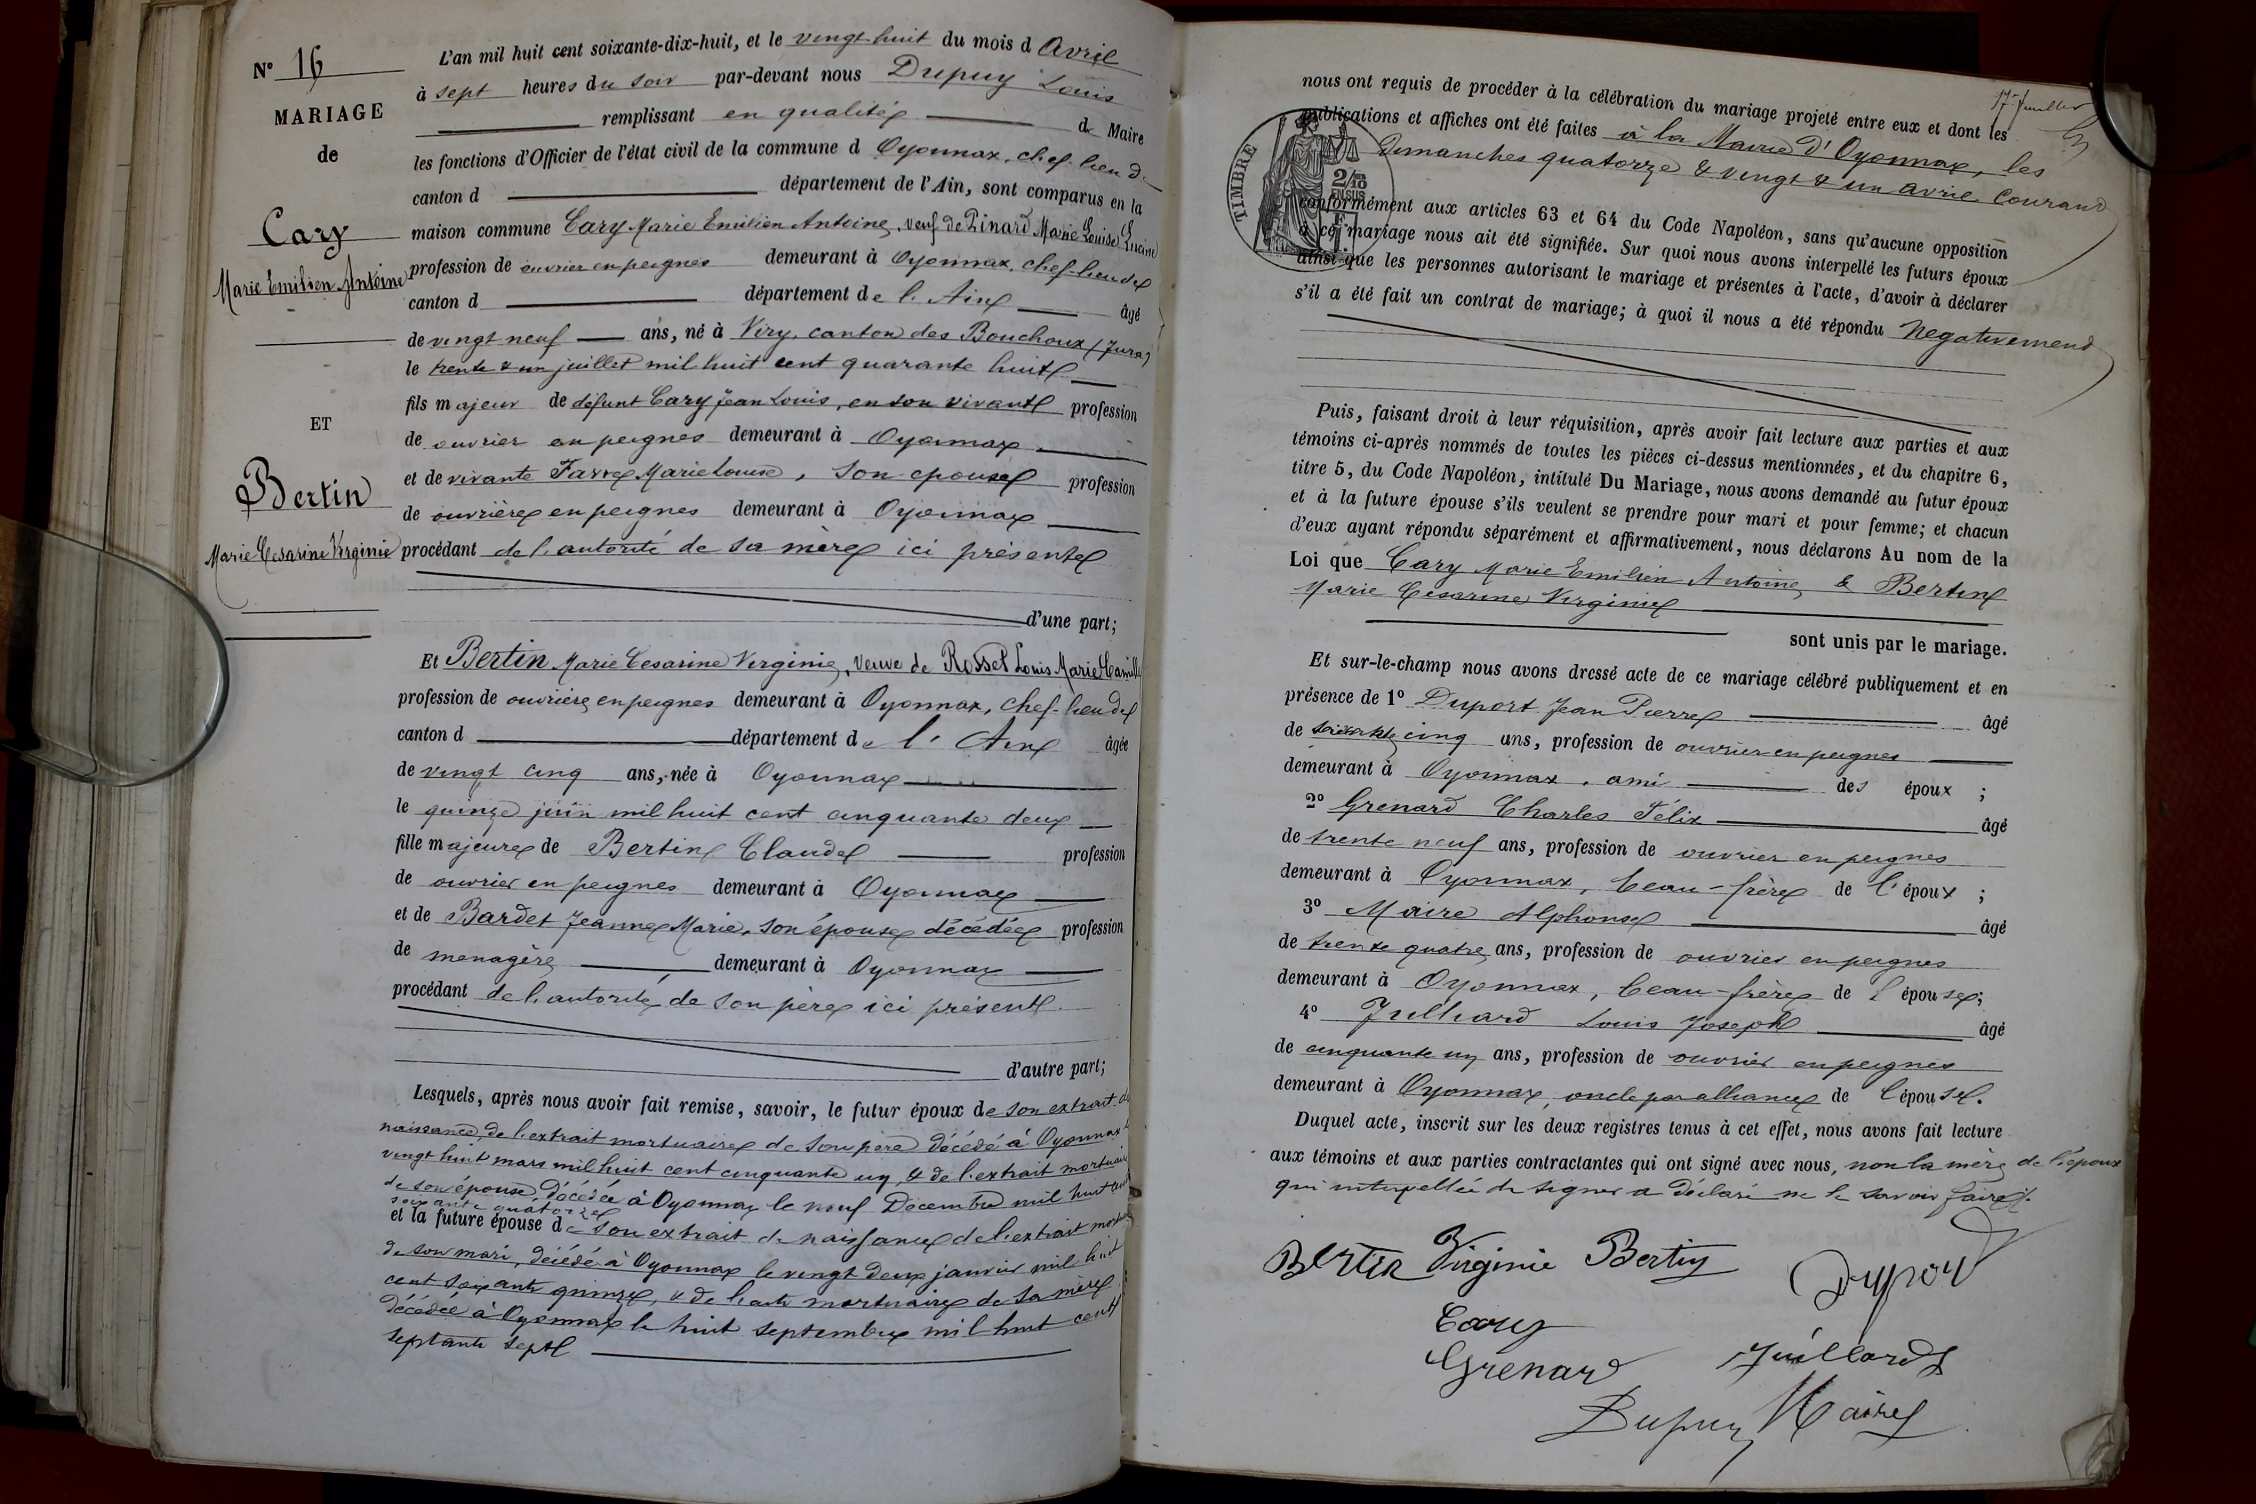 N° 16
MARIAGE
de
Cary
Marie Emilien Antoine
ET
Bertin
Marie Cesarine Virginie
L'an mil huit cent soixante-dix-huit, et le vingt-huit du mois d Avril
à sept heures du soir par-devant nous Dupuy Louis
remplissant en qualité de Maire
les fonctions d'Officier de l'état civil de la commune d Oyonnax, chef-lieu de
canton d département de l'Ain, sont comparus en la
maison commune Cary Marie Emilien Antoine, veuf de Pinard Marie Louise Lucine
profession de ouvrier en peignes demeurant à Oyonnax, chef-lieu de
canton d département de l'Ain âgé
de vingt neuf ans, né à Viry, canton des Bouchoux (Jura)
le trente & un juillet mil huit cent quarante huit
fils majeur de défunt Cary Jean Louis, en son vivant profession
de ouvrier en peignes demeurant à Oyonnax
et de vivante Favre Marie Louise, son epouse profession
de ouvrière en peignes demeurant à Oyonnax
procédant de l'autorité de sa mère ici présente
d'une part;
Et Bertin Marie Cesarine Virginie, veuve de Rosset Louis Marie Camille
profession de ouvrière en peignes demeurant à Oyonnax, chef-lieu de
canton d département de l'Ain âgée
de vingt cinq ans, née à Oyonnax
le quinze juin mil huit cent cinquante deux
fille majeure de Bertin Claude profession
de ouvrier en peignes demeurant à Oyonnax
et de Bardet Jeanne Marie, son épouse décédée profession
de menagère demeurant à Oyonnax
procédant de l'autorité de son père ici présent
d'autre part;
Lesquels, après nous avoir fait remise, savoir, le futur époux de son extrait de
naissance, de l'extrait mortuaire de son père décédé à Oyonnax le
vingt huit mars mil huit cent cinquante un, & de l'extrait mortuaire
de son épouse, décédée à Oyonnax le neuf Decembre mil huit cent
soixante quatorze
et la future épouse de son extrait de naissance, de l'extrait mortuaire
de son mari, décédé à Oyonnax le vingt deux janvier mil huit
cent soixante quinze, & de l'acte mortuaire de sa mère
décédée à Oyonnax le huit septembre mil huit cent
septante sept
17 Juillet
nous ont requis de procéder à la célébration du mariage projeté entre eux et dont les
publications et affiches ont été faites à la Mairie d'Oyonnax, les
dimanches quatorze & vingt & un avril courant
TIMBRE
2/10
EN SUS
conformément aux articles 63 et 64 du Code Napoléon, sans qu'aucune opposition
à ce mariage nous ait été signifiée. Sur quoi nous avons interpellé les futurs époux
ainsi que les personnes autorisant le mariage et présentes à l'acte, d'avoir à déclarer
s'il a été fait un contrat de mariage; à quoi il nous a été répondu Negativement
Puis, faisant droit à leur réquisition, après avoir fait lecture aux parties et aux
témoins ci-après nommés de toutes les pièces ci-dessus mentionnées, et du chapitre 6,
titre 5, du Code Napoléon, intitulé Du Mariage, nous avons demandé au futur époux
et à la future épouse s'ils veulent se prendre pour mari et pour femme; et chacun
d'eux ayant répondu séparément et affirmativement, nous déclarons Au nom de la
Loi que Cary Marie Emilien Antoine & Bertin
Marie Césarine Virginie
sont unis par le mariage.
Et sur-le-champ nous avons dressé acte de ce mariage célébré publiquement et en
présence de 1° Duport Jean Pierre âgé
de soixante cinq ans, profession de ouvrier en peignes
demeurant à Oyonnax, ami des époux ;
2° Grenard Charles Félix âgé
de trente neuf ans, profession de ouvrier en peignes
demeurant à Oyonnax, beau-frère de l'époux ;
3° Maire Alphonse âgé
de trente quatre ans, profession de ouvrier en peignes
demeurant à Oyonnax, beau-frère de l'épouse;
4° Juilliard Louis Joseph âgé
de cinquante un ans, profession de ouvrier en peignes
demeurant à Oyonnax, oncle par alliance de l'épouse.
Duquel acte, inscrit sur les deux registres tenus à cet effet, nous avons fait lecture
aux témoins et aux parties contractantes qui ont signé avec nous, non la mère de l'époux
qui interpellée de signer a déclaré ne le savoir faire.
Bertin Virginie Bertin Duport
Cary
Grenard Juillard
Dupuy Maire